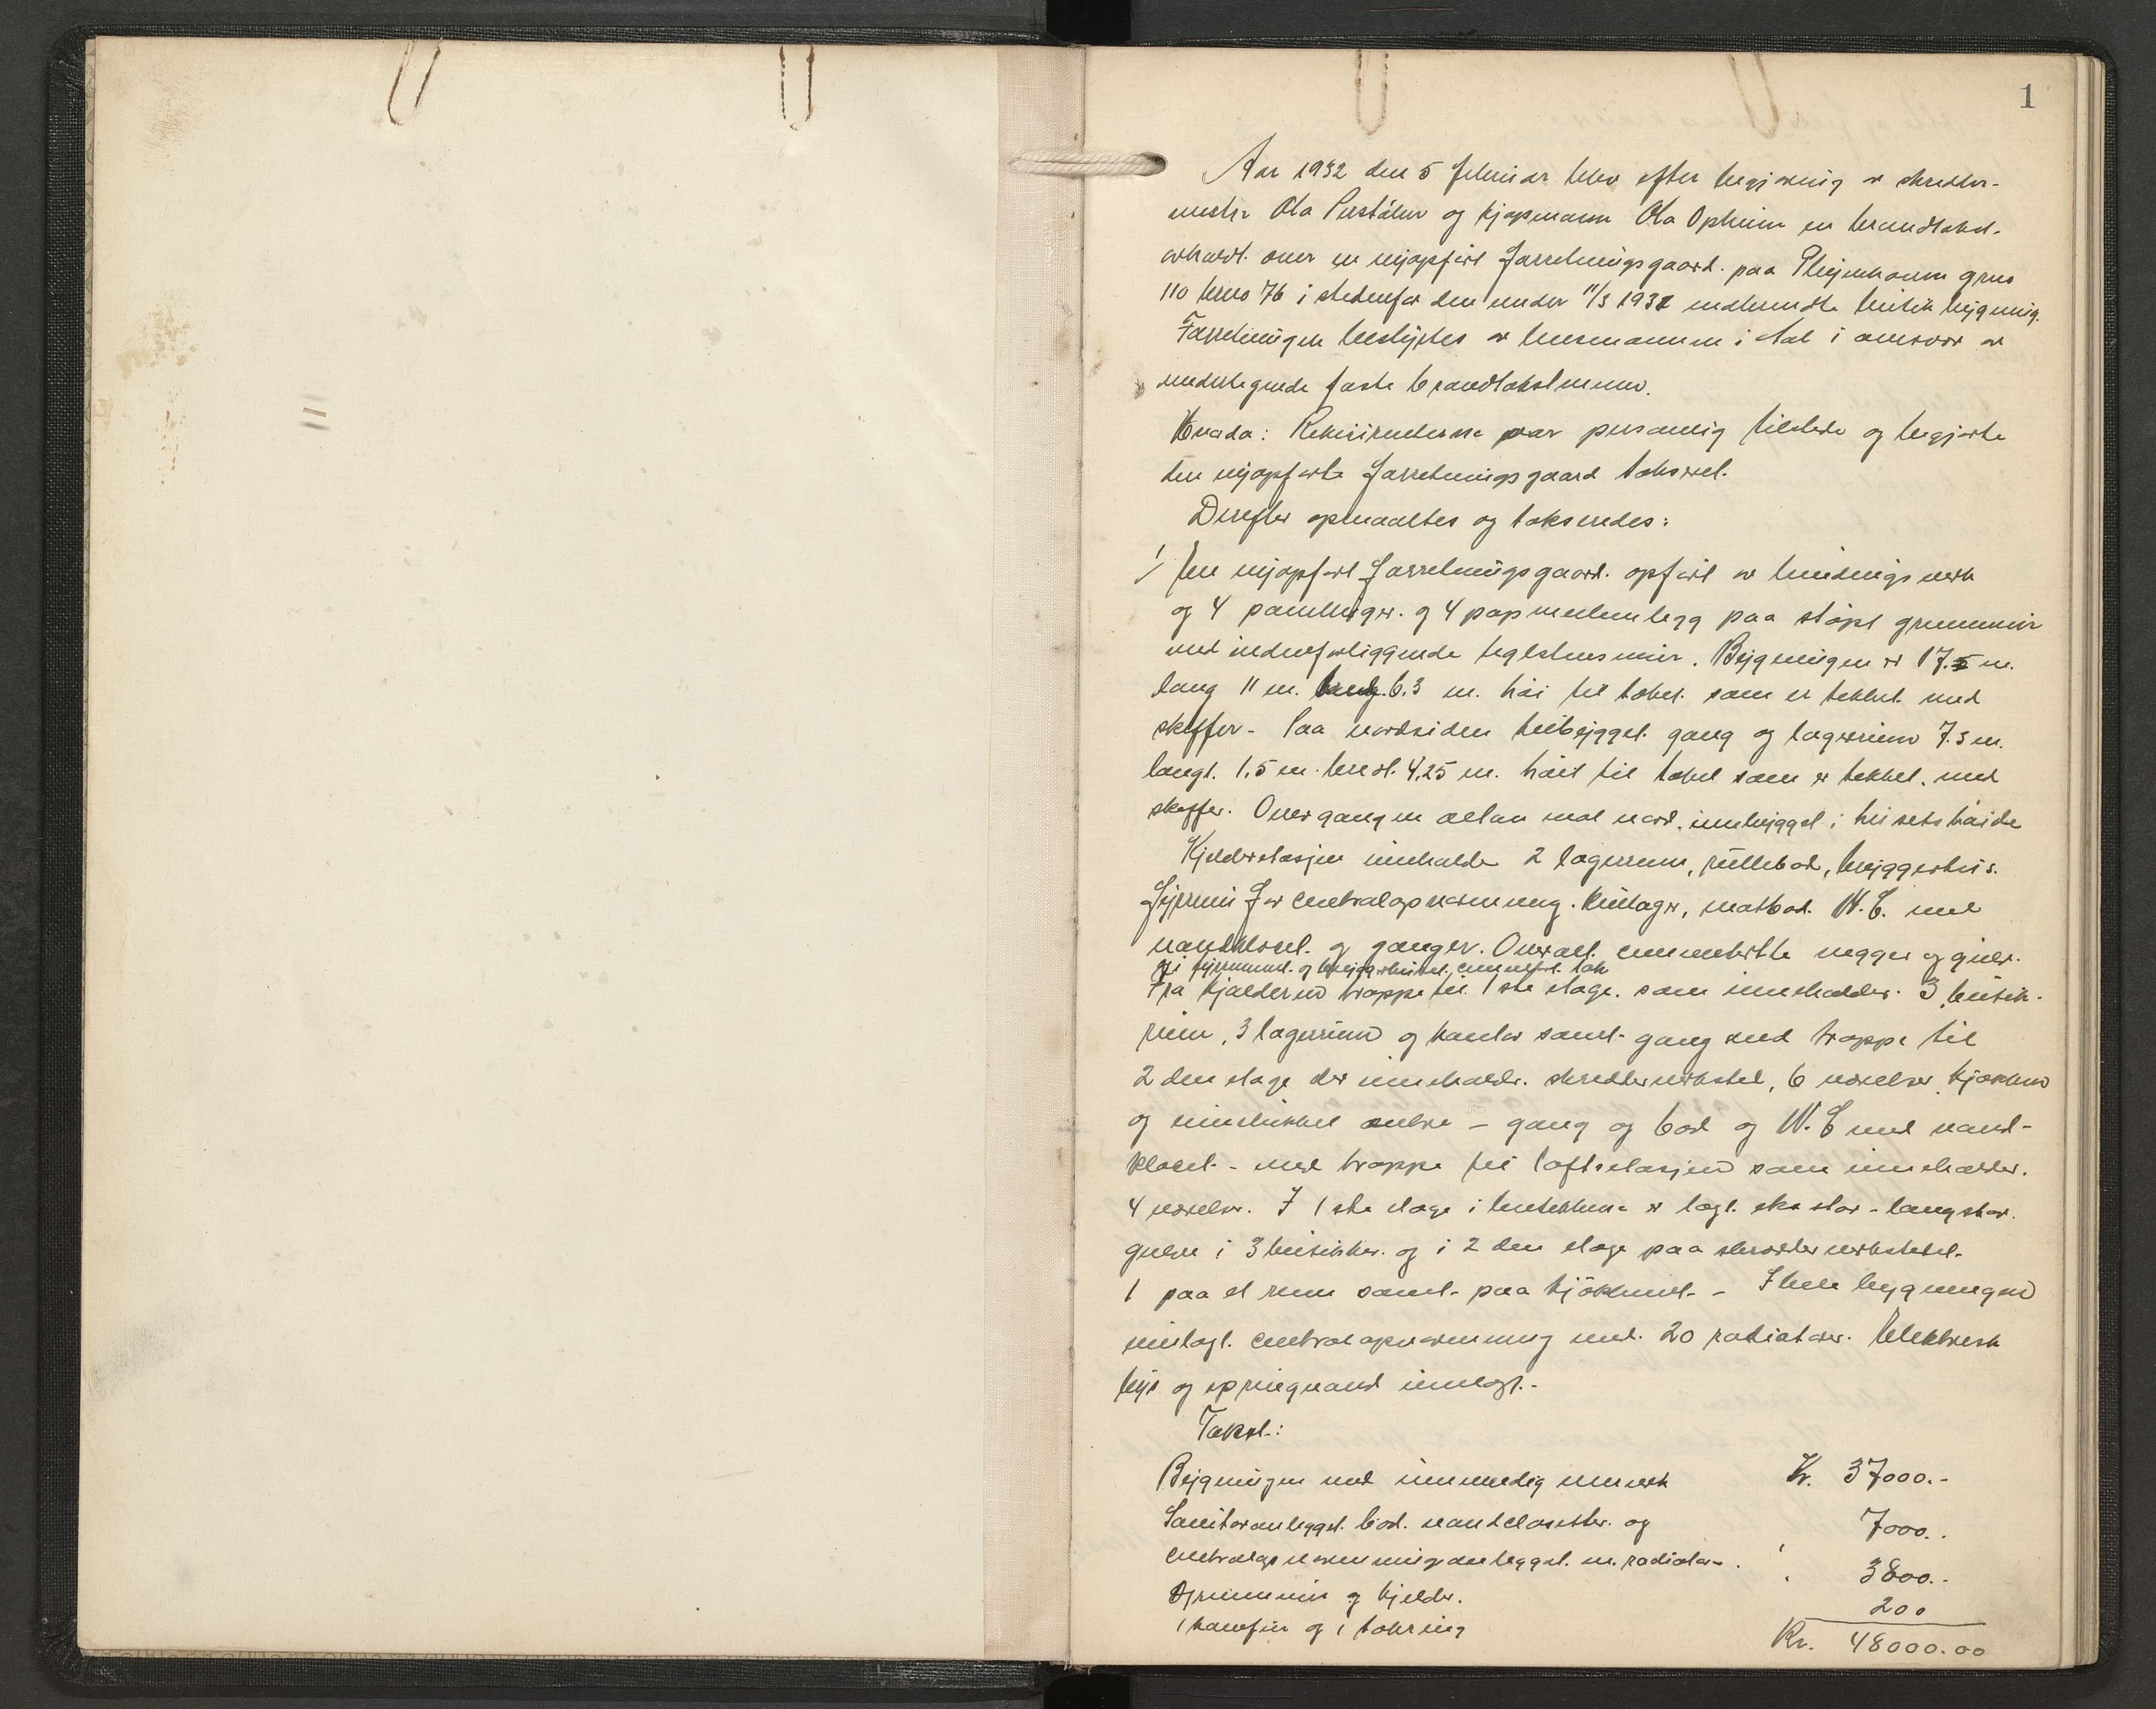 1
Aar 1932 den 5 februar blev efter begjæring av skrædder-
mester Ola og kjøpmann Ola Opheim en brandtakst.
avholdt. over en nyopført forretningsgaard. paa gnr
110 brno 76 i stedenfor den under 11/3 1931 nedbrendte butik bygning.
Forretningen bestyrtes av lensmannen i Aal i overvær av
undertegnede faste brandtakstmenn.
Hvorda: Rekvirenterne var personlig tilstede og begjærte
den nyopførte forretningsgaard taksert.
Derefter opmaaltes og takseredes:
1/ En nyopført forretningsgaard. opført av bindingsverk
og 4 panelinger. og 4 papmellemlegg paa støpt grunnmur
med indenforliggende teglstensmur. Bygningen er 17.5 m.
lang 11 m. bred. 6.3 m. høi til taket. som er tekket med
skiffer - Paa nordsiden tilbygget. gang og lagerrum 7.5 m.
langt. 1,5 m. bredt. 4,25 m. høit til taket som er tekket. med
skiffer. Over gangen altan mot nord. innbygget i husets høide
Kjelderetasjen inneholder 2 lagerrum, rullebod, bryggerhus.
fyrrum for centralopvarmning. kullager, matbod. W.C. med
vandklosel. og ganger. Overalt. cementerte vegger og gulv.
og i fyrrummet. og bryggerhuset. cementert. tak
Fra kjælderen trappe til 1ste etage. som inneholder. 3 butik-
rum, 3 lagerrum og kontor samt. gang med trappe til
2den etage der inneholder. skrædderverksted, 6 værelser kjøkken
og innelukket entre - gang og bod og W.C med vand-
kloset. - med trappe til loftsetasjen som inneholder.
4 værelser. I 1ste etage i butikkene er lagt.
gulve i 3 butikker. og i 2den etage paa skrædderverkstedet.
1 paa et rum samt- paa kjökkenet. - I hele bygningen
innlagt. centralopvarmning med. 20 radiatorer. Elektrisk
lys og springvand innlagt.-
Takst:
Bygningen med innvendig murverk Kr. 37000.-
Sanitæranlegget. bad. vandclosetter. og
centralopvarmningsanlegget. m. radiatorer. " 7000.-
Grunnmur og kjelder. " 3800.-
1 komfur og 1 takring 200
Kr. 48000.00